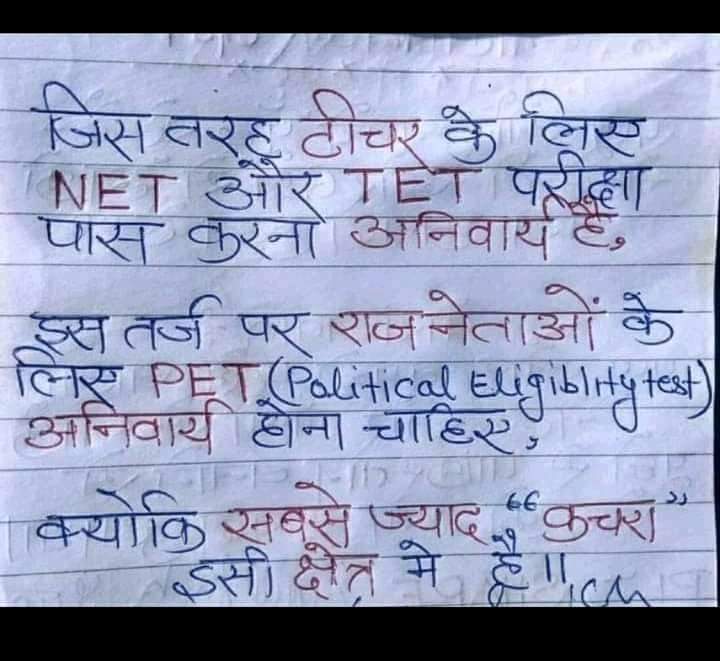 जिस तरह टीचर के लिए
NET और TET परीक्षा
पास करना अनिवार्य है,
इस तर्ज पर राजनेताओं के
लिए PET (Political Eligiblity test)
अनिवार्य होना चाहिए,
क्योकि सबसे ज्याद "कुचरा"
इसी क्षेत्र मे है॥